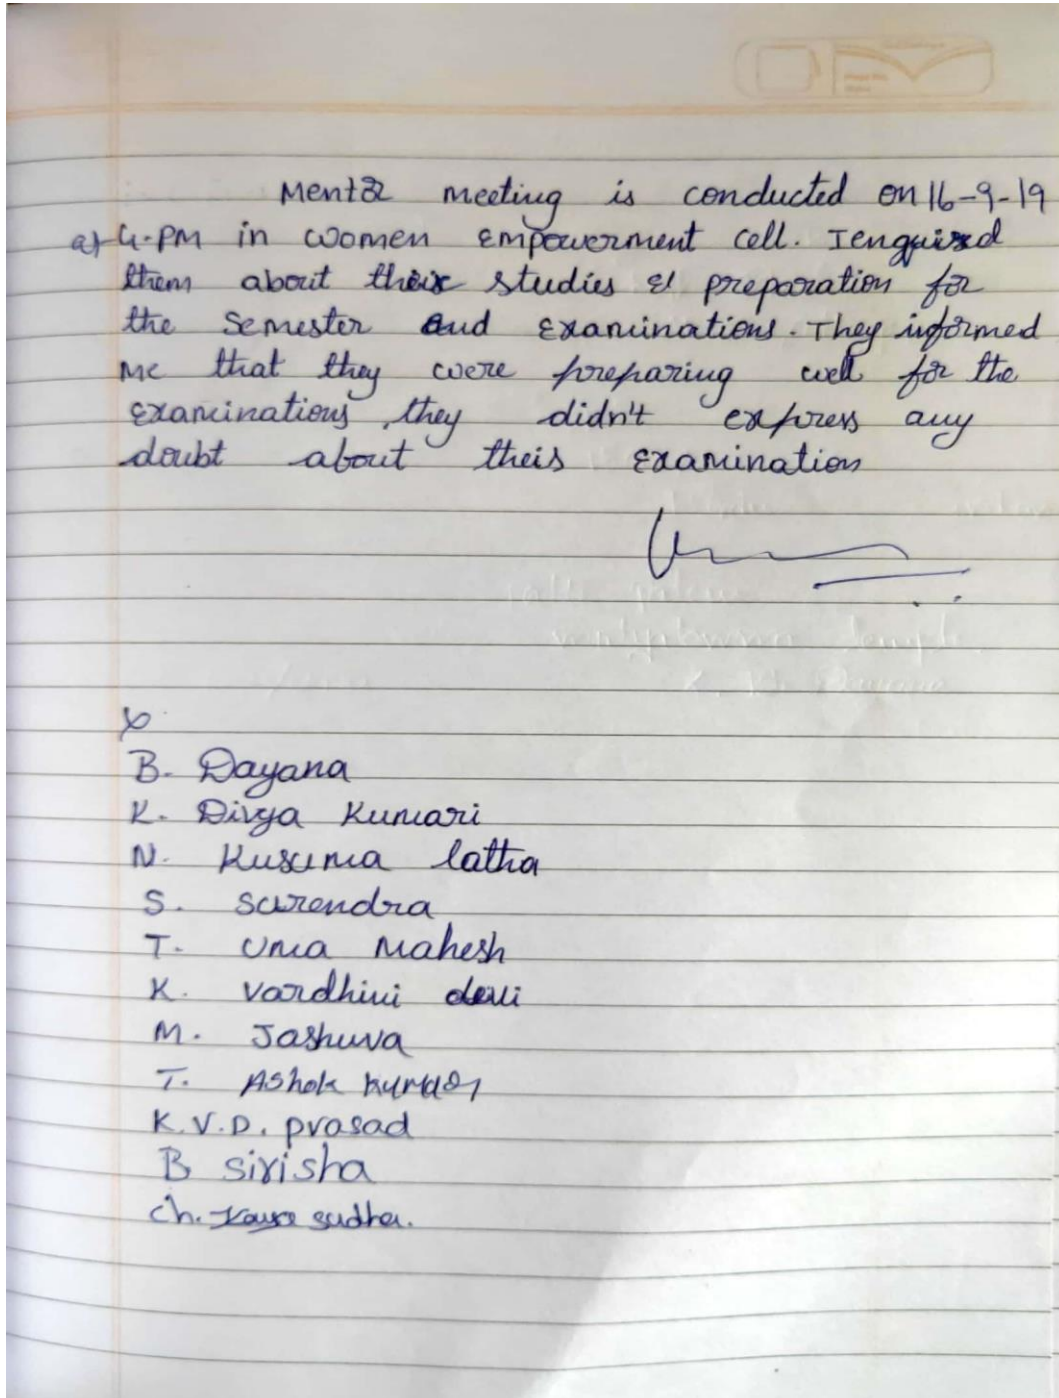 Mentor meeting is conducted on 16-9-19
at 4-PM in women empowerment cell. I enquired
them about their studies & preparation for
the semester end examinations. They informed
me that they were preparing well for the
examinations, they didn't express any
doubt about their examination
B. Dayana
K. Divya Kumari
N. Kusuma latha
S. Surendra
T. Uma Mahesh
K. Vardhini devi
M. Jashuva
T. Ashok Kumar
K.V.D. prasad
B sirisha
Ch. sudha.